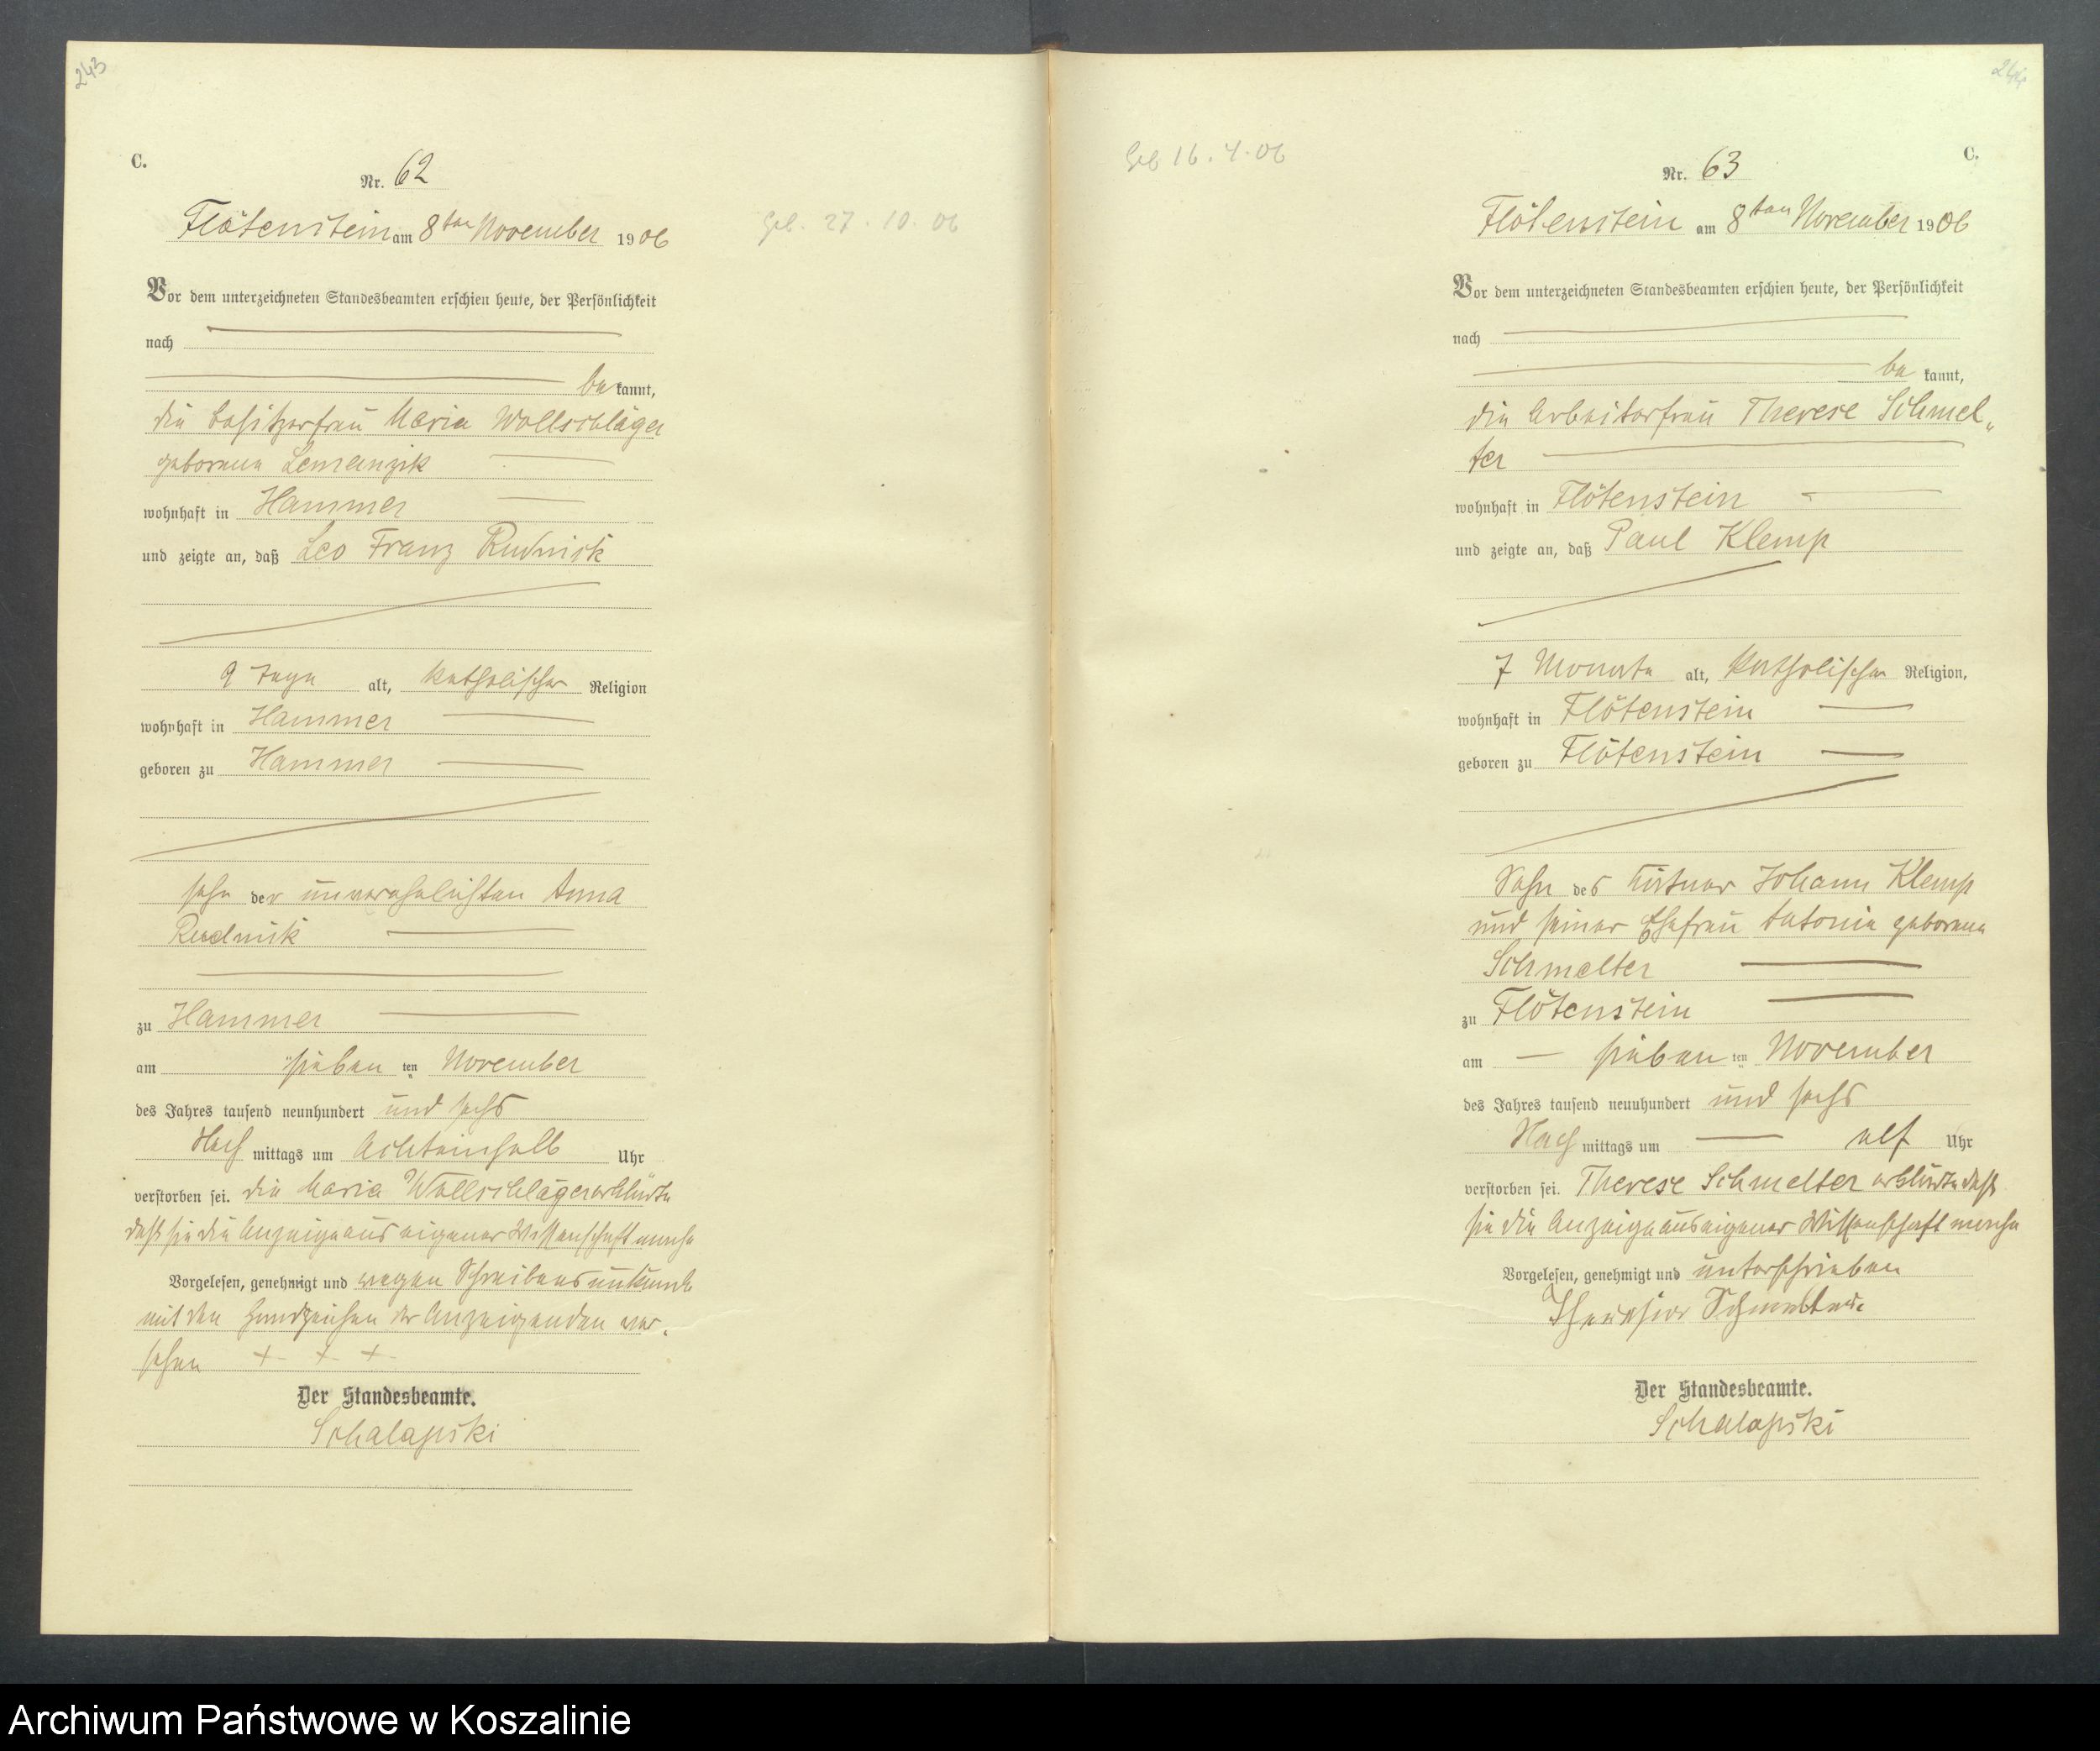 243
C.
Nr. 62
Flötenstein am 8ten November 1906
Geb. 27.10.06
Vor dem unterzeichneten Standesbeamten erschien heute, der Persönlichkeit
nach
be kannt,
die Besitzerfrau Maria Wollschläger
geborene Lemanzik
wohnhaft in Hammer
und zeigte an, daß Leo Franz Rudnick
9 Tage alt, katholischer Religion
wohnhaft in Hammer
geboren zu Hammer
Sohn der unverehelichten Anna
Rudnik
zu Hammer
am sieben ten November
des Jahres tausend neunhundert und sechs
Nach mittags um Achteinhalb Uhr
verstorben sei. die Maria Wollschläger erklärte
daß sie die Anzeige aus eigener Wissenschaft mache
Vorgelesen, genehmigt und wegen Schreibensunkunde
mit den Handzeichen der Anzeigenden ver-
sehen + + +
Der Standesbeamte.
Schalapski
244
C.
Geb 16.4.06
Nr. 63
Flötenstein am 8ten November 1906
Vor dem unterzeichneten Standesbeamten erschien heute, der Persönlichkeit
nach
be kannt,
die Arbeiterfrau Therese Schmel„
ter
wohnhaft in Flötenstein
und zeigte an, daß Paul Klemp
7 Monate alt, katholischer Religion,
wohnhaft in Flötenstein
geboren zu Flötenstein
Sohn des Johann Klemp
und seiner Ehefrau Antonie geborene
Schmelter
zu Flötenstein
am sieben ten November
des Jahres tausend neunhundert und sechs
Nach mittags um elf Uhr
verstorben sei. Therese Schmelter erklärte daß
sie die Anzeige aus eigener Wissenschaft mache
Vorgelesen, genehmigt und unterschrieben
Schmelter
Der Standesbeamte.
Schalapski
Archiwum Państwowe w Koszalinie